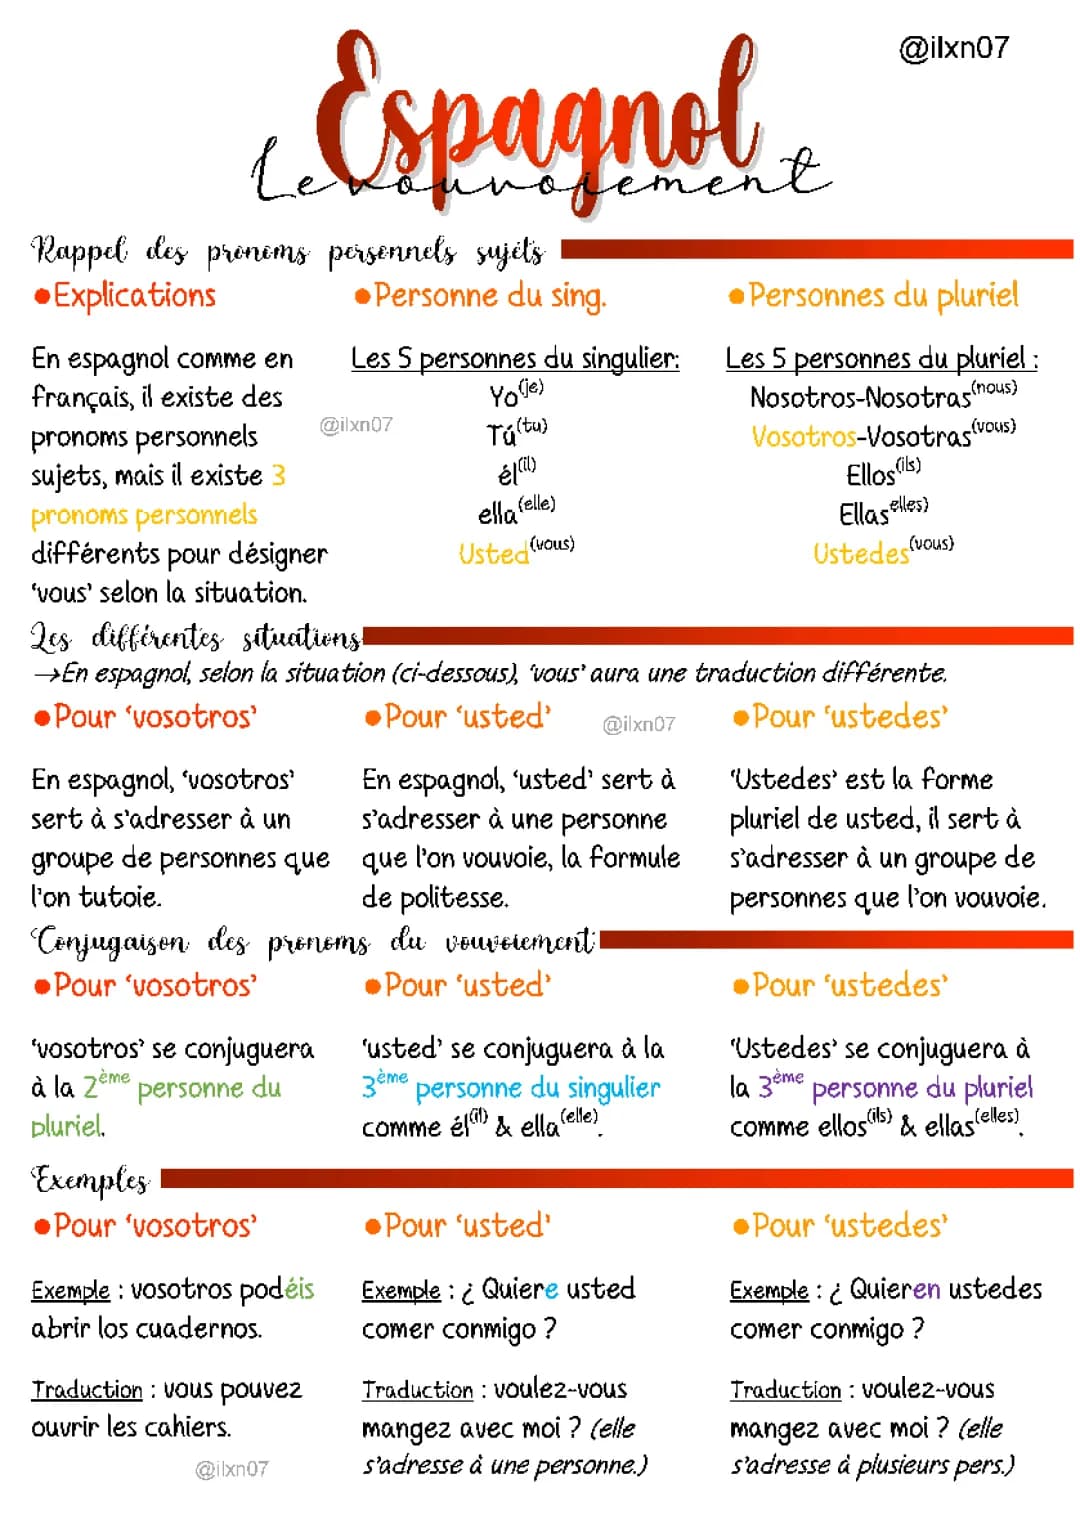 @ilxn07
Espagnol
Le vouvoiement
Rappel des pronoms personnels sujets
•Explications
En espagnol comme en
français, il existe des
pronoms personnels
sujets, mais il existe 3
pronoms personnels
différents pour désigner
'vous' selon la situation.
@ilxn07
•Personne du sing.
Les 5 personnes du singulier:
Yo(je)
Tú(tu)
él(il)
ella(elle)
Usted(vous)
•Personnes du pluriel
Les 5 personnes du pluriel :
Nosotros-Nosotras(nous)
Vosotros-Vosotras(vous)
Ellos(ils)
Ellas elles)
Ustedes(vous)
Les différentes situations
→En espagnol, selon la situation (ci-dessous), 'vous' aura une traduction différente.
•Pour 'vosotros'
En espagnol, 'vosotros'
sert à s'adresser à un
groupe de personnes que
l'on tutoie.
•Pour 'usted'
@ilxn07
En espagnol, 'usted' sert à
s'adresser à une personne
que l'on vouvoie, la formule
de politesse.
•Pour 'ustedes'
'Ustedes' est la forme
pluriel de usted, il sert à
s'adresser à un groupe de
personnes que l'on vouvoie.
Conjugaison des pronoms du vouvoiement
•Pour 'vosotros'
'vosotros' se conjuguera
à la 2ème personne du
pluriel.
•Pour 'usted'
'usted' se conjuguera à la
3ème personne du singulier
comme él(il) & ella(elle).
•Pour 'ustedes'
'Ustedes' se conjuguera à
la 3ème personne du pluriel
comme ellos(ils) & ellas(elles).
Exemples
•Pour 'vosotros'
Exemple : vosotros podéis
abrir los cuadernos.
Traduction : vous pouvez
ouvrir les cahiers.
@ilxn07
•Pour 'usted'
Exemple : ¿ Quiere usted
comer conmigo ?
Traduction : voulez-vous
mangez avec moi ? (elle
s'adresse à une personne.)
•Pour 'ustedes'
Exemple : ¿ Quieren ustedes
comer conmigo ?
Traduction : voulez-vous
mangez avec moi ? (elle
s'adresse à plusieurs pers.)